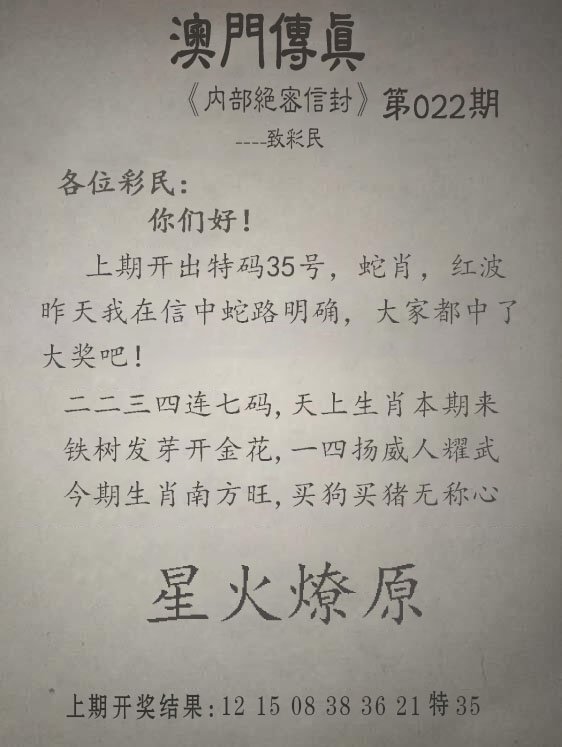 澳門傳眞
《内部絕密信封》第022期
----致彩民
各位彩民：
你们好！
上期开出特码35号，蛇肖，红波
昨天我在信中蛇路明确，大家都中了
大奖吧！
二二三四连七码,天上生肖本期来
铁树发芽开金花,一四扬威人耀武
今期生肖南方旺,买狗买猪无称心
星火燎原
上期开奖结果:12 15 08 38 36 21 特35